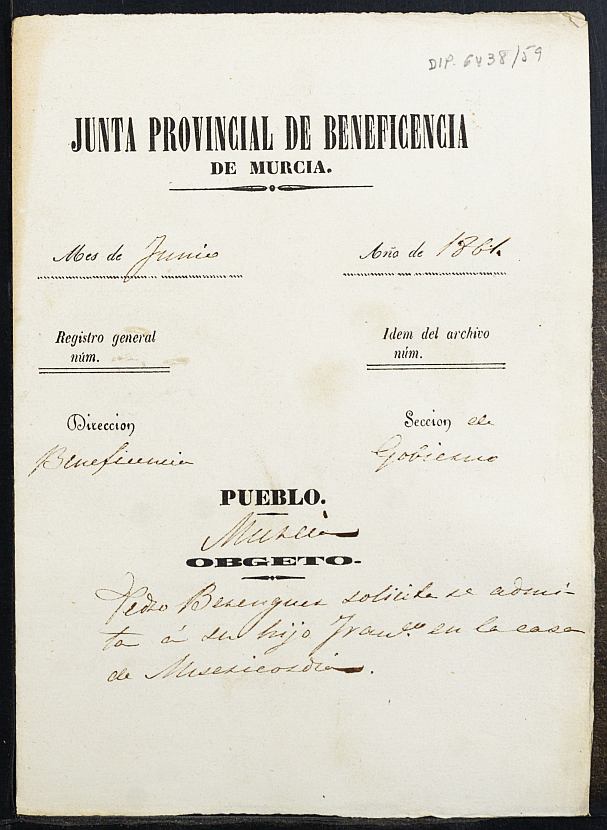 DIP. 6438/59
JUNTA PROVINCIAL DE BENEFICENCIA
DE MURCIA.
Mes de Junio
Año de 1861.
Registro general
núm.
Idem del archivo
núm.
Direccion
Beneficencia
Seccion de
Gobierno
PUEBLO.
Murcia
OBGETO.
Pedro Berenguer solicita se admi-
ta á su hijo Franco. en la casa
de Misericordia.